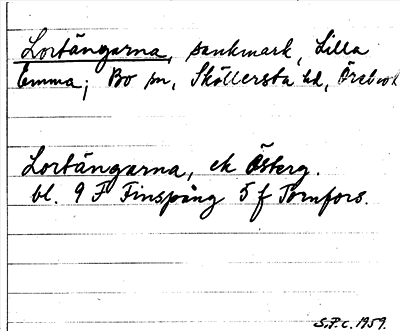 Lortängarna, sankmark, Lilla
Emma; Bo sn, Sköllersta hd, Örebro l
Lortängarna, ek Österg.
bl. 9 F Finspång 5 f Tornfors.
S.P.C. 1959.